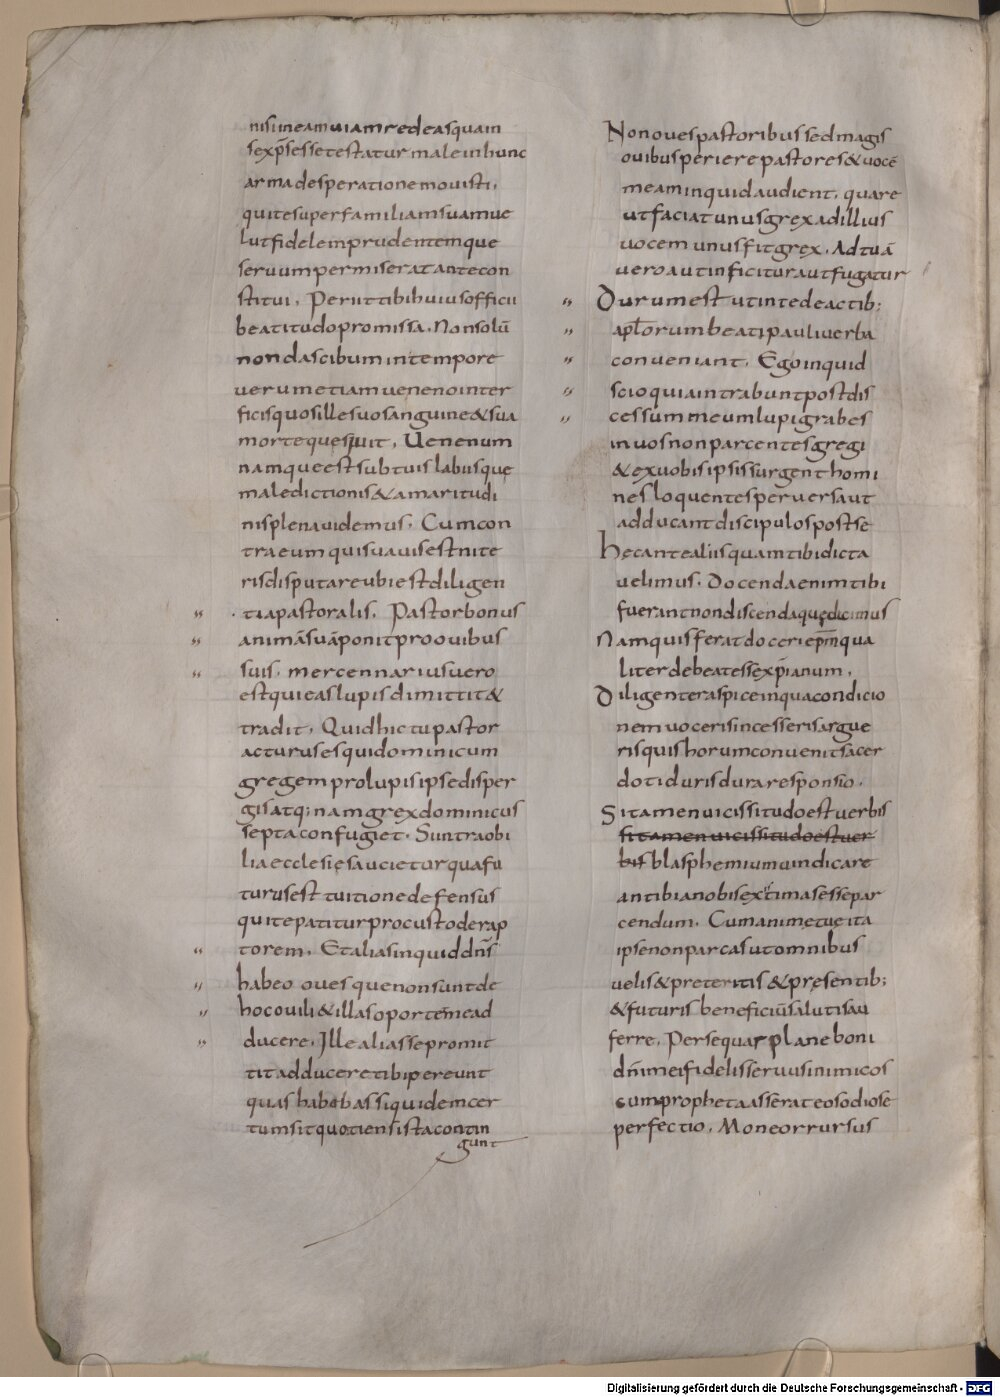 nisi in eam uiam redeas quam
se xp̄s esse testatur male in hunc
arma desperatione mouisti.
qui te super familiam suam ue
lut fidelem prudentemque
seruum permiserat ante con
stitui. Periit tibi huius officii
beatitudo promissa. Non solū
non das cibum in tempore
uerum etiam ueneno inter
ficis quos ille suo sanguine & sua
morte quesiuit. Uenenum
namque est sub tuis labiis que
maledictionis & amaritudi
nis plena uidemus. Cum con
tra eum qui suauis est nite
ris disputare ubi est diligen
tia pastoralis. Pastor bonus
animā suā ponit pro ouibus
suis. mercennarius uero
est qui eas lupis dimittit &
tradit. Quid hic tu pastor
acturus es qui dominicum
gregem pro lupis ipse disper
gis atq; nam grex dominicus
septa confugiet. Sunt ra obi
lia ecclesię saucietur qua fu
turus est tuitione defensus
qui te patitur pro custode rap
torem. Et alias inquid dn̄s
habeo oues que non sunt de
hoc ouili & illas oportet me ad
ducere. Ille alias se promit
tit adducere tibi pereunt
quas habebas siquidem cer
tum sit quotiens ista contin
gunt
Non oues pastoribus sed magis
ouibus periere pastores & uocē
meam inquid audient. quare
ut faciat unus grex ad illius
uocem unus fit grex. Ad tuā
uero aut inficitur aut fugatur
Durum est ut in te de actib;
apl̄orum beati pauli uerba
conueniant. Ego inquid
scio quia intrabunt post dis
cessum meum lupi grabes
in uos non parcentes gregi
& ex uobis ipsis surgent homi
nes loquentes peruersa ut
adducant discipulos post se
Hec ante aliis quam tibi dicta
uelimus. Docenda enim tibi
fuerant non discenda quę dicimus
Nam quis ferat doceri ep̄m qua
liter debeat esse xp̄ianum.
Diligenter aspice in qua condicio
nem uoceris incesseris argue
ris quis horum conuenit sacer
doti duris dura responsio.
Si tamen uicissitudo est uerbis
si tamen uicissitudo est uer
bis blasphemium uindicare
anti bia nobis extimas esse par
cendum. Cum anime tue ita
ipse non parcas ut omnibus
uelis & preteritis & presentib;
& futuris beneficiū salutis au
ferre. Persequar plane boni
dn̄i mei fidelis seruus inimicos
cum propheta asserat eos odiose
perfectio. Moneor rursus
Digitalisierung gefördert durch die Deutsche Forschungsgemeinschaft - DFG